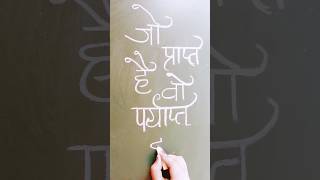 जो
प्राप्त
है वो
पर्याप्त